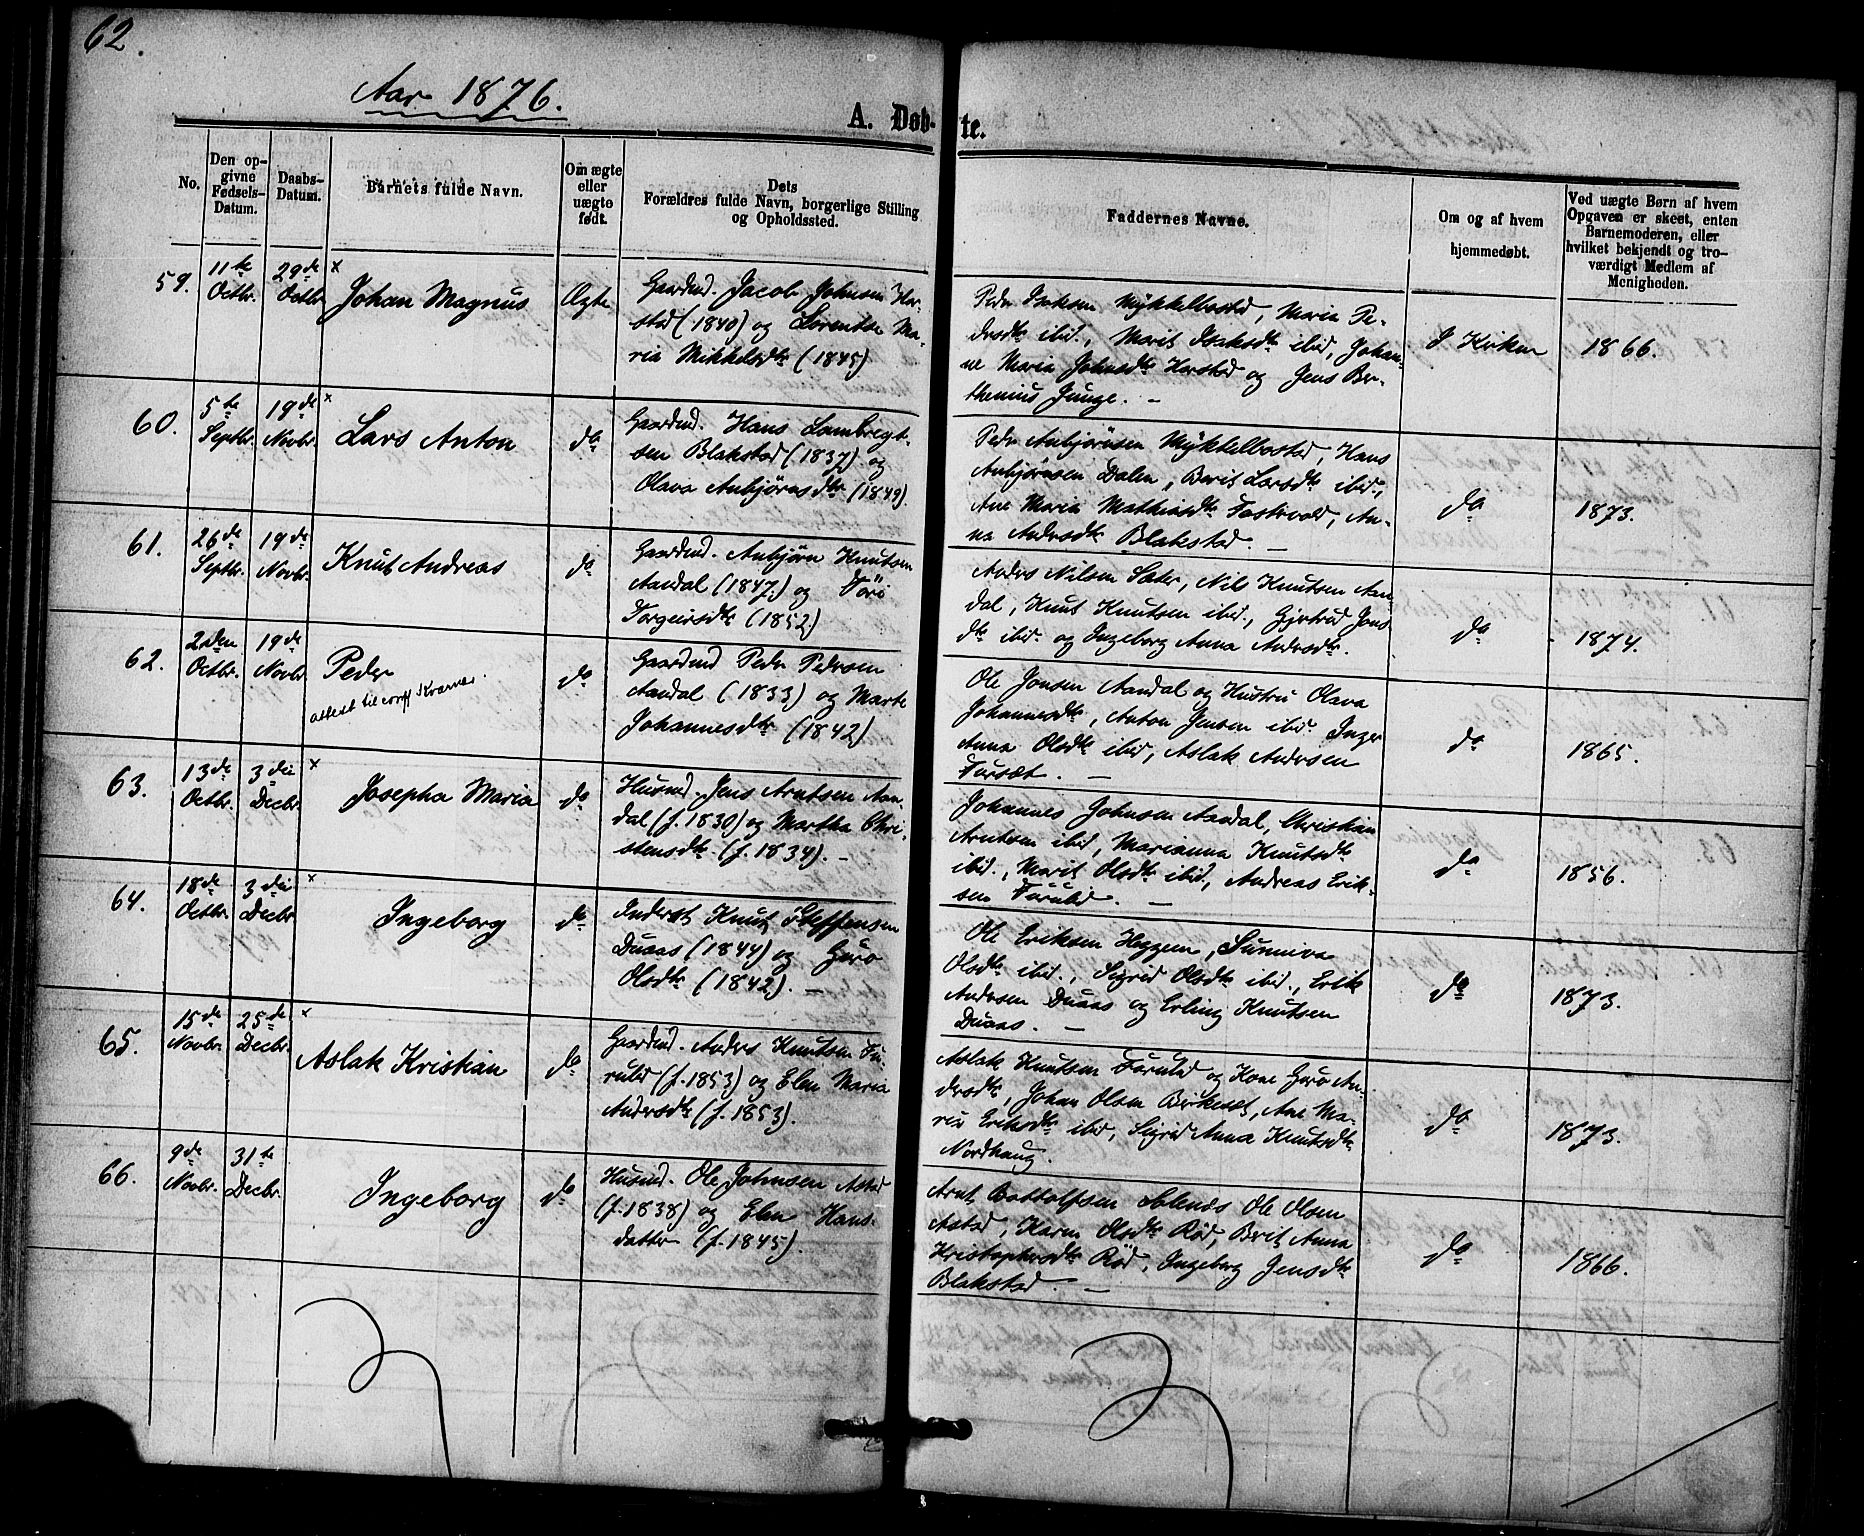 62.
Aar 1876.
A. Døb-
te.
No.
Den op-
givne
Fødsels-
Datum.
Daabs-
Datum.
Barnets fulde Navn.
Om ægte
eller
uægte
født.
Dets
Forældres fulde Navn, borgerlige Stilling
og Opholdssted.
Faddernes Navne.
Om og af hvem
hjemmedøbt.
Ved uægte Børn af hvem
Opgaven er skeet, enten
Barnemoderen, eller
hvilket bekjendt og tro-
værdigt Medlem af
Menigheden.
59.
11te
Octbr.
29de
Octbr.
×
Johan Magnus
Ægte
Gaardmd. Jacob Johnsen Har-
stad (1840) og Lorentse Ma-
ria Mikkelsdtr (1845)
Peder Isaksen Mykkelbostad, Maria Pe-
dersdtr ibid., Marit Isaksdtr ibid, Johan-
ne Maria Johnsdtr Harstad og Jens Ber-
thenius Junge. —
I Kirken
1866.
60.
5te
Septbr.
19de
Novbr.
×
Lars Anton
do
Gaardmd. Hans Lambregt-
sen Blakstad (1837) og
Olava Anbjørnsdtr (1849)
Peder Anbjørnsen Mykkelbostad, Hans
Anbjørnsen Dalen, Berit Larsdtr ibid.,
Ane Maria Mathiasdtr Fastvold, An-
na Andersdtr Blakstad. —
do
1873.
61.
26de
Septbr.
19de
Novbr.
Knut Andreas
do
Gaardmd. Anbjørn Knutsen
Aandal (1847) og Töri
Torgeirsdtr (1852)
Anders Nilsen Sæter, Nils Knutsen Aan-
dal, Knut Knutsen ibid., Gjertrud Jons
dtr ibid. og Ingeborg Anna Andersdtr.
do
1874.
62.
2den
Octbr.
19de
Novbr.
Peder
do
Gaardmd Peder Pedersen
Aandal (1833) og Marte
Johannesdtr (1842)
Ole Jonsen Aandal og Hustru Olava
Johannesdtr, Anton Jensen ibid. Inger
Anna Olsdtr ibid, Aslak Andersen
Fursæt. —
do
1865.
63.
13de
Octbr.
3die
Decbr.
×
Josepha Maria
do
Husmd. Jens Arntsen Aan-
dal (f. 1830) og Martha Chri-
stensdtr (f. 1834). —
Johannes Johnsen Aandal, Christian
Arntsen ibid, Marianna Knutsdtr
ibid., Marit Olsdtr ibid, Andreas Erik-
sen Furulid. —
do
1856.
64.
18de
Octbr.
3die
Decbr.
×
Ingeborg
do
Inderst Knut Steffensen
Duaas (1844) og Guro
Olsdtr (1842). —
Ole Eriksen Heggem, Sunniva
Olsdtr ibid., Sigrid Olsdtr ibid., Erik
Andersen Duaas og Erling Knutsen
Duaas. —
do
1873.
65.
15de
Novbr.
25de
Decbr.
×
Aslak Kristian
do
Gaardmd. Anders Knutsen Fu-
rulid (f. 1853) og Elen Maria
Andersdtr (f. 1853).
Aslak Knutsen Furulid og Kone Guro An-
dersdtr, Johan Olsen Birkeset, Ane Ma-
ria Eriksdtr ibid, Sigrid Anna Knutsdtr
Nordhaug.
do
1873.
66.
9de
Novbr.
31te
Decbr.
Ingeborg
do
Husmd. Ole Johnsen Astad
(f. 1838) og Elen Hans-
datter (f. 1845).
Arnt Bottolfsen Ole Olsen
Astad, Karen Olsdtr Rød, Brit Anna
Kristophersdtr Rød, Ingeborg Jensdtr
Blakstad. —
do
1866.